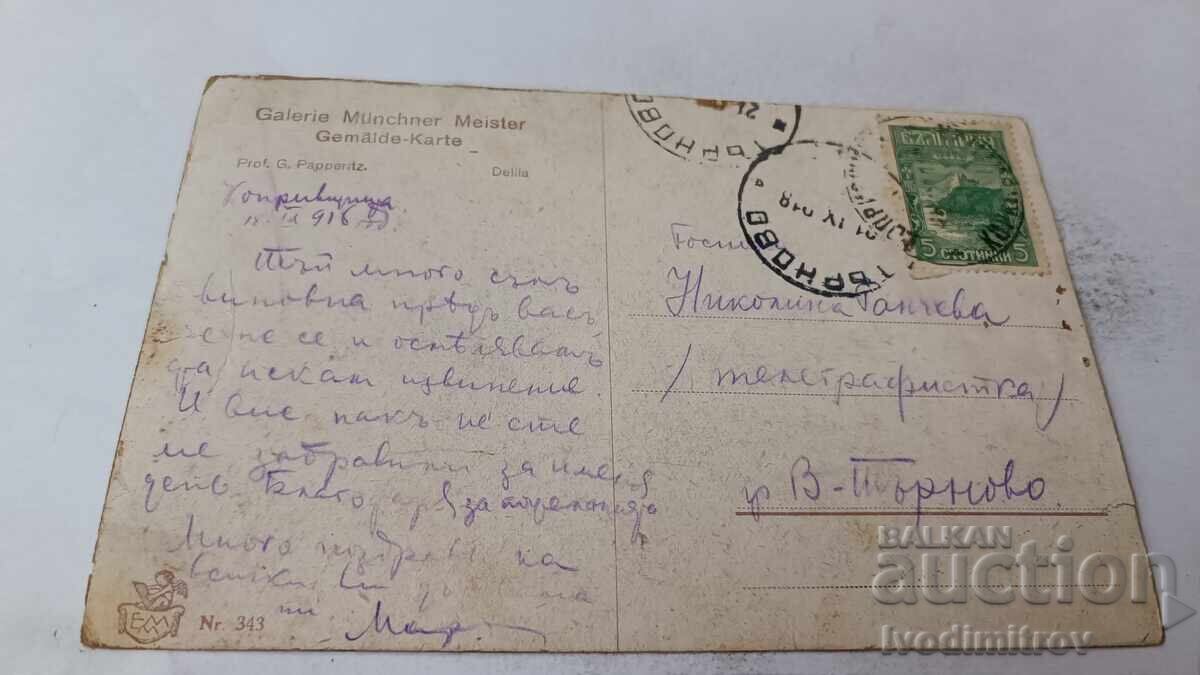 Galerie Münchner Meister
Gemälde-Karte
Prof. G. Papperitz.
Delila
Копривщица
IX 916
Тъй много съмъ
виновна прѣдъ васъ,
че не се и осмѣлявамъ
да искам извинение.
И вие пакъ не сте
ме забравили за имения
день. Благодаря за
Много поздрави на
всички
ти
Мар.
Nr. 343
ТЪРНОВО
21
ТЪРНОВО
21 IX 918
БЪЛГАРИЯ
5 СТОТИНКИ 5
Госп
Николина Ганчева
/ телеграфистка /
гр В-Търново
BALKAN
auction
Ivodimitrov